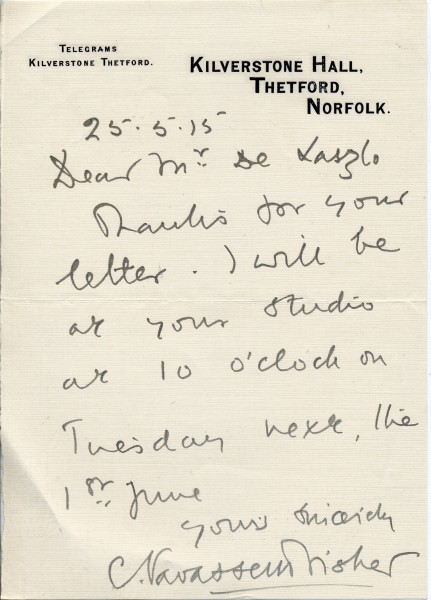 TELEGRAMS
KILVERSTONE THETFORD.
KILVERSTONE HALL,
THETFORD,
NORFOLK.
25.5.15
Dear Mr. De Laszlo
Thanks for your
letter. I will be
at your studio
at 10 o'clock on
Tuesday next, the
1st June
yours sincerely
C. Navasseur Fisher